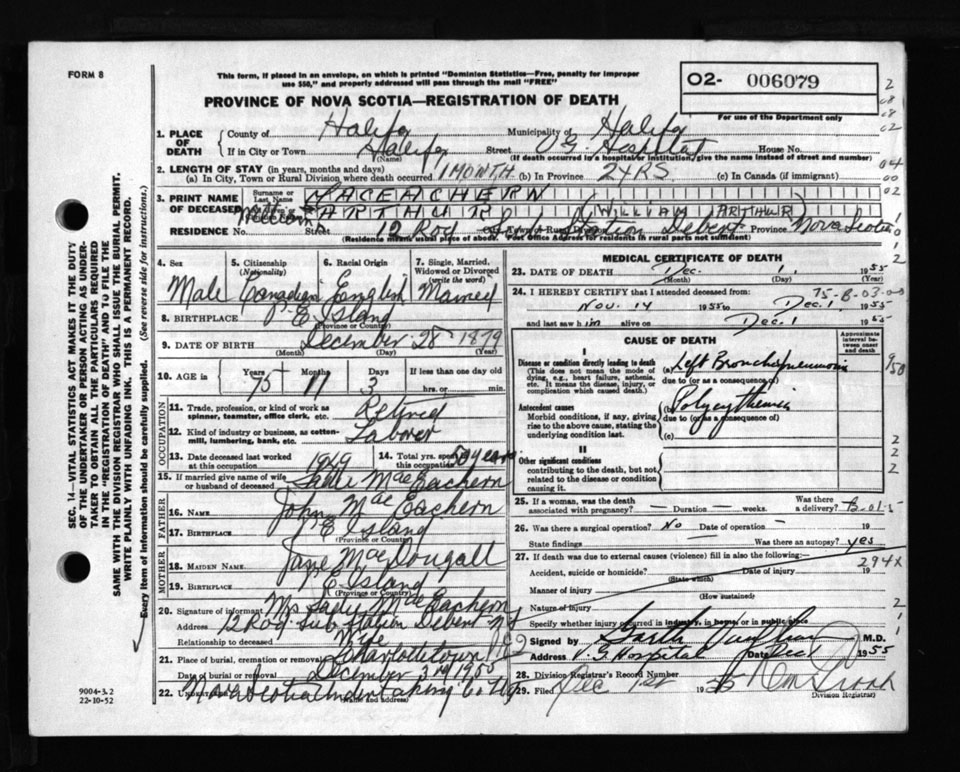 FORM 8
This form, if placed in an envelope, on which is printed "Dominion Statistics—Free, penalty for improper
use $50," and properly addressed will pass through the mail "FREE"
O2- 006079
For use of the Department only
PROVINCE OF NOVA SCOTIA—REGISTRATION OF DEATH
1. PLACE OF DEATH County of Halifax Municipality of Halifax
If in City or Town Halifax (Name) Street V.G. Hospital House No.
(If death occurred in a hospital or institution, give the name instead of street and number)
2. LENGTH OF STAY (in years, months and days)
(a) In City, Town or Rural Division where death occurred 1 MONTH (b) In Province 2 YRS. (c) In Canada (if immigrant)
3. PRINT NAME OF DECEASED Surname or Last Name MACEACHERN
William ARTHUR (WILLIAM ARTHUR)
RESIDENCE No. Street 12 Rod Sub Station Debert Province Nova Scotia
(Residence means usual place of abode. Post Office Address for residents in rural parts not sufficient)
4. Sex 5. Citizenship (Nationality) 6. Racial Origin 7. Single, Married, Widowed or Divorced (write the word)
Male Canadian English Married
8. BIRTHPLACE P.E. Island
(Province or Country)
9. DATE OF BIRTH December 28 1879
(Month) (Day) (Year)
10. AGE in Years 75 Months 11 Days 3 If less than one day old hrs. or min.
OCCUPATION
11. Trade, profession, or kind of work as spinner, teamster, office clerk, etc. Retired
12. Kind of industry or business, as cotton-mill, lumbering, bank, etc. Laborer
13. Date deceased last worked at this occupation 1949 14. Total yrs. spent in this occupation years
15. If married give name of wife or husband of deceased Sadie MacEachern
FATHER
16. NAME John MacEachern
17. BIRTHPLACE P.E. Island
(Province or Country)
MOTHER
18. MAIDEN NAME Jane MacDougall
19. BIRTHPLACE P.E. Island
(Province or Country)
20. Signature of informant Mrs Sadie MacEachern
Address 12 Rod Sub Station Debert N.S
Relationship to deceased Wife
21. Place of burial, cremation or removal Charlottetown P.E.I
Date of burial or removal December 3rd 1955
22. UNDERTAKER Nova Scotia Undertaking Co Ltd
(Name and address)
9004-3.2
22-10-52
MEDICAL CERTIFICATE OF DEATH
23. DATE OF DEATH Dec. 1, 1955
(Month) (Day) (Year)
24. I HEREBY CERTIFY that I attended deceased from:
75-B-03-00
Nov. 14 1955 to Dec. 1 1955
and last saw him alive on Dec. 1 1955
CAUSE OF DEATH
Approximate interval between onset and death
I
Disease or condition directly leading to death
(This does not mean the mode of dying, e.g., heart failure, asthenia, etc. It means the disease, injury, or complication which caused death.)
(a) Left Bronchopneumonia
due to (or as a consequence of)
Antecedent causes
Morbid conditions, if any, giving rise to the above cause, stating the underlying condition last.
(b) Polycythemia
due to (or as a consequence of)
(c)
II
Other significant conditions
contributing to the death, but not related to the disease or condition causing it.
25. If a woman, was the death associated with pregnancy? — Duration — weeks. Was there a delivery?
26. Was there a surgical operation? No Date of operation — 19
State findings Was there an autopsy? yes
27. If death was due to external causes (violence) fill in also the following:—
294X
Accident, suicide or homicide? (State which) Date of injury 19
Manner of injury
(How sustained)
Nature of injury
Specify whether injury occurred in industry, in home, or in public place
Signed by Garth Vaughan M.D.
Address V.G. Hospital Date Dec 1 1955
28. Division Registrar's Record Number
29. Filed Dec 1st 1955
Division Registrar)
SEC. 14—VITAL STATISTICS ACT MAKES IT THE DUTY
OF THE UNDERTAKER OR PERSON ACTING AS UNDER-
TAKER TO OBTAIN ALL THE PARTICULARS REQUIRED
IN THE "REGISTRATION OF DEATH" AND TO FILE THE
SAME WITH THE DIVISION REGISTRAR WHO SHALL ISSUE THE BURIAL PERMIT.
WRITE PLAINLY WITH UNFADING INK. THIS IS A PERMANENT RECORD.
Every item of information should be carefully supplied. (See reverse side for instructions.)